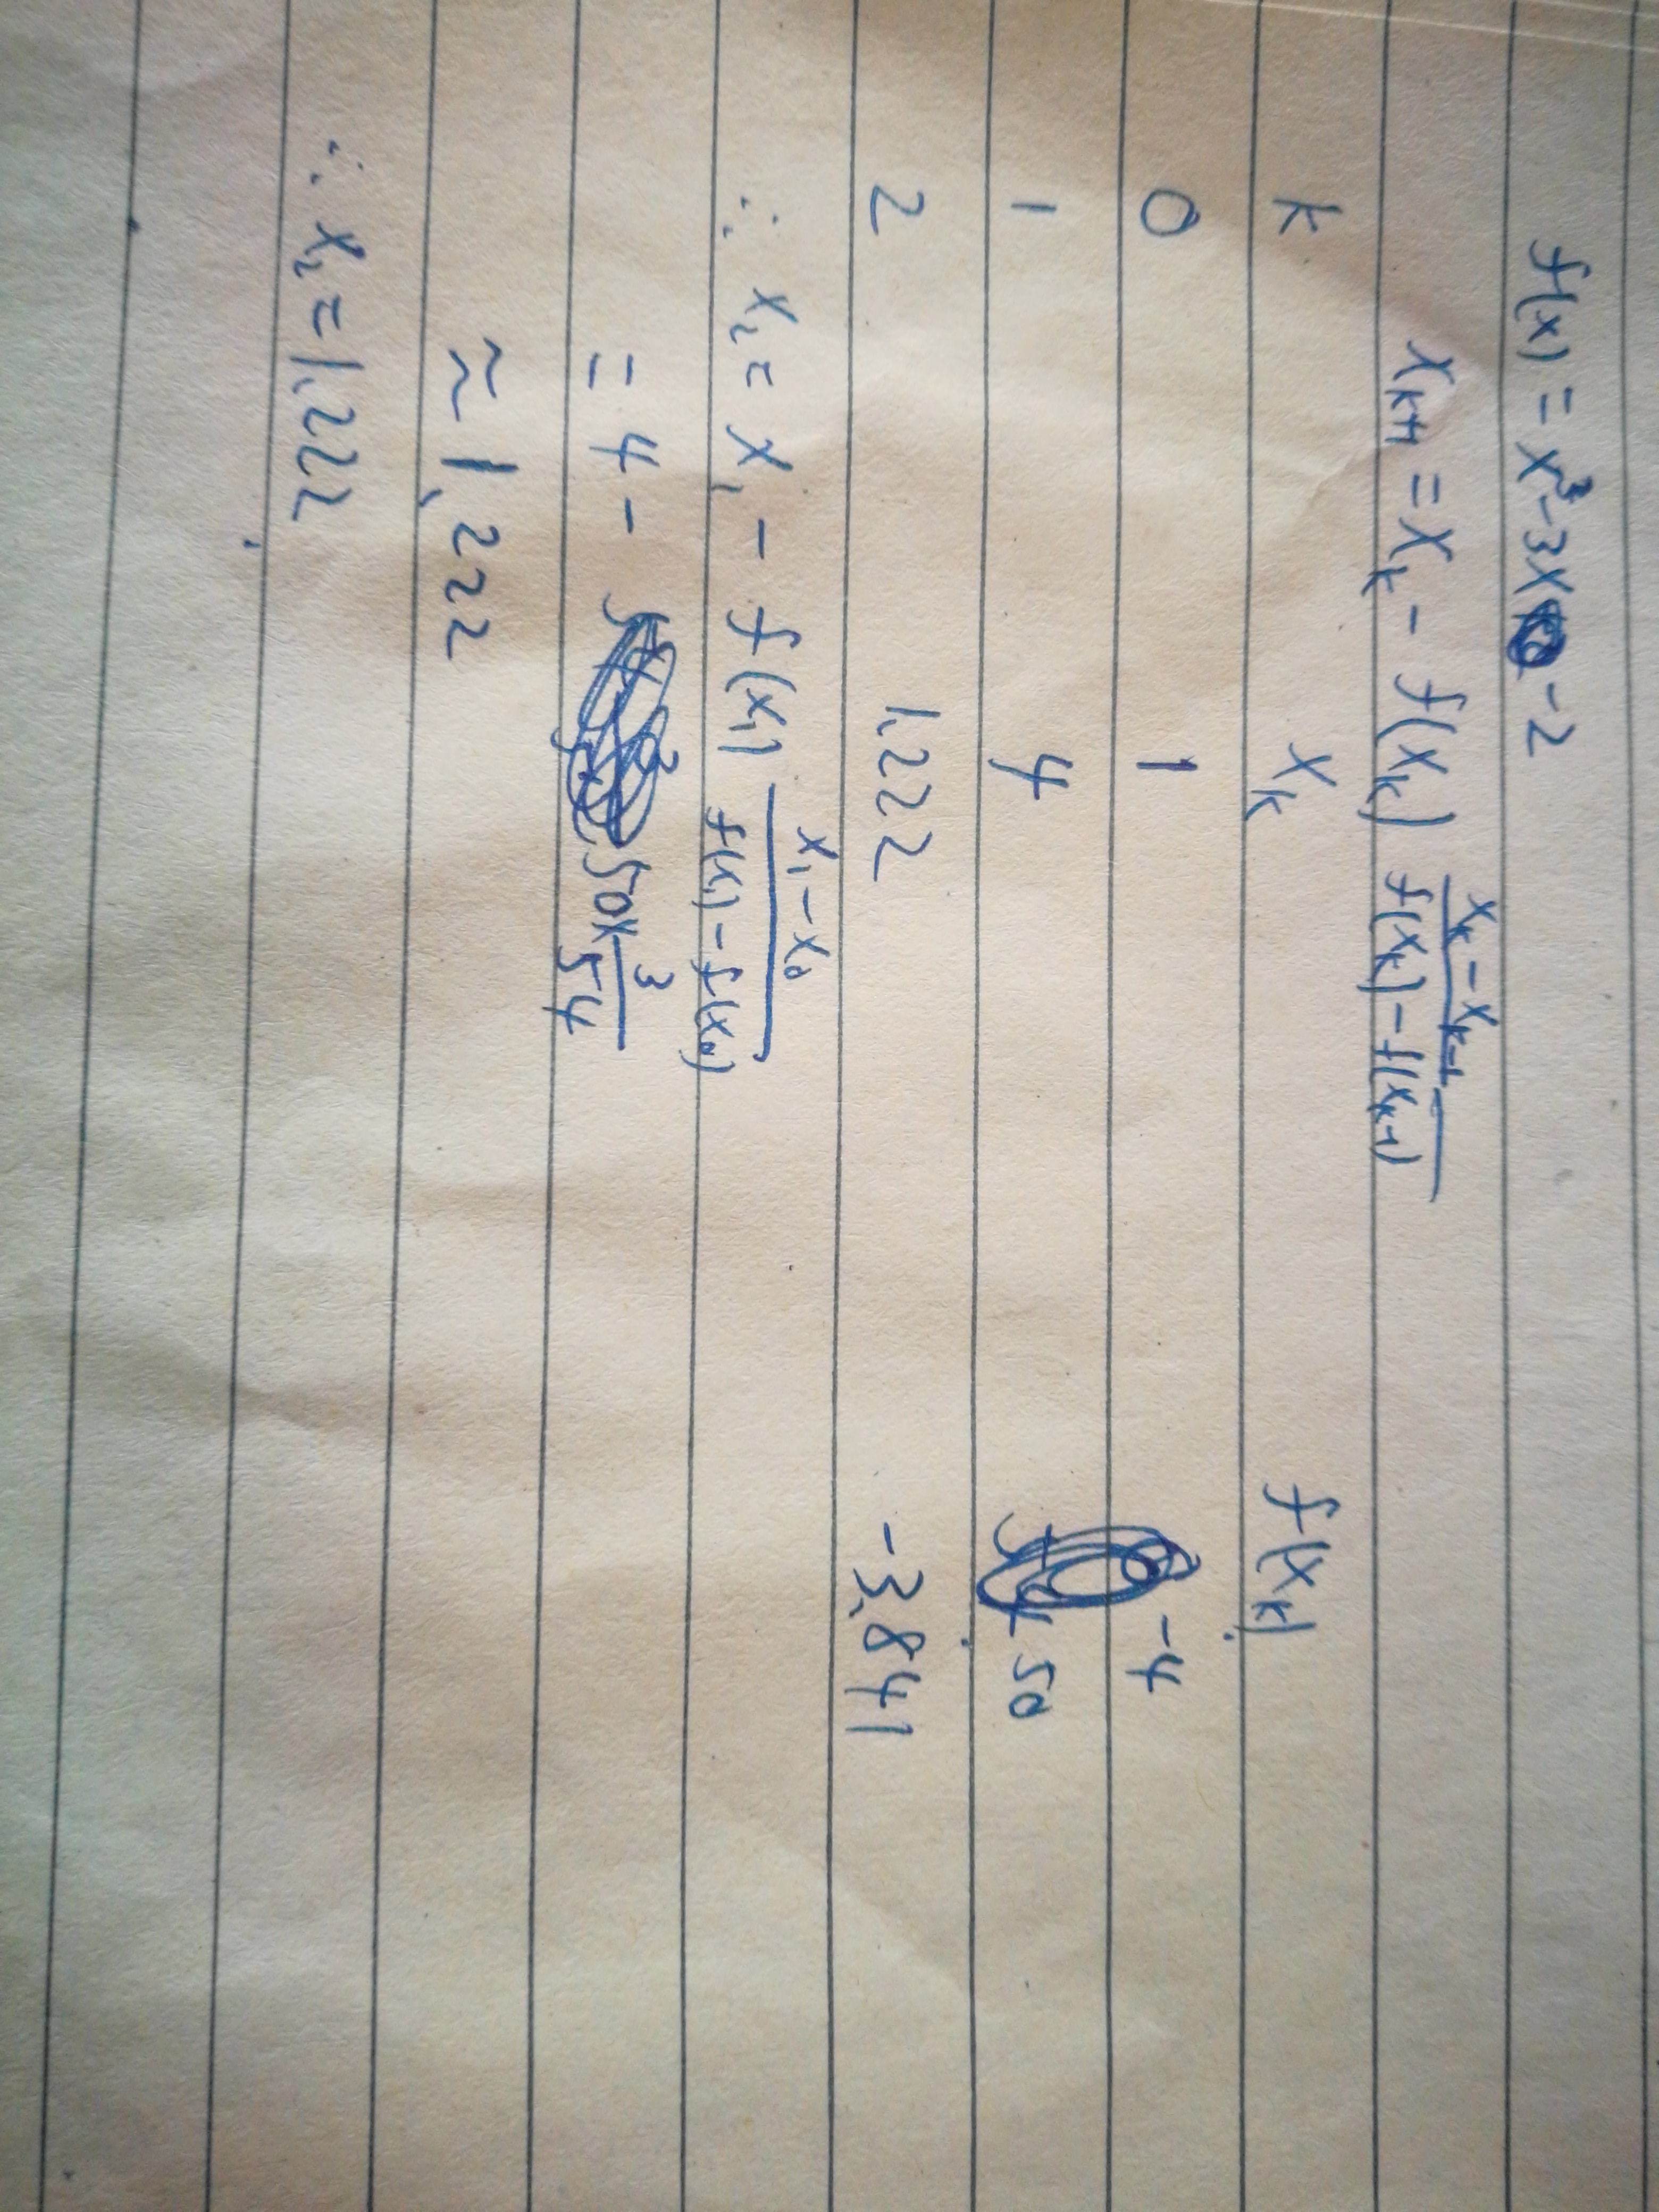 f(x) = x³-3x -2
x_{k+1} = x_k - f(x_k) \frac{x_k - x_{k-1}}{f(x_k) - f(x_{k-1})}
k x_k f(x_k)
0 1 -4
1 4 50
2 1.222 -3.841
∴ x₂ = x₁ - f(x₁) \frac{x₁ - x₀}{f(x₁) - f(x₀)}
= 4 - 50× \frac{3}{54}
≈ 1.222
∴ x₂ = 1.222